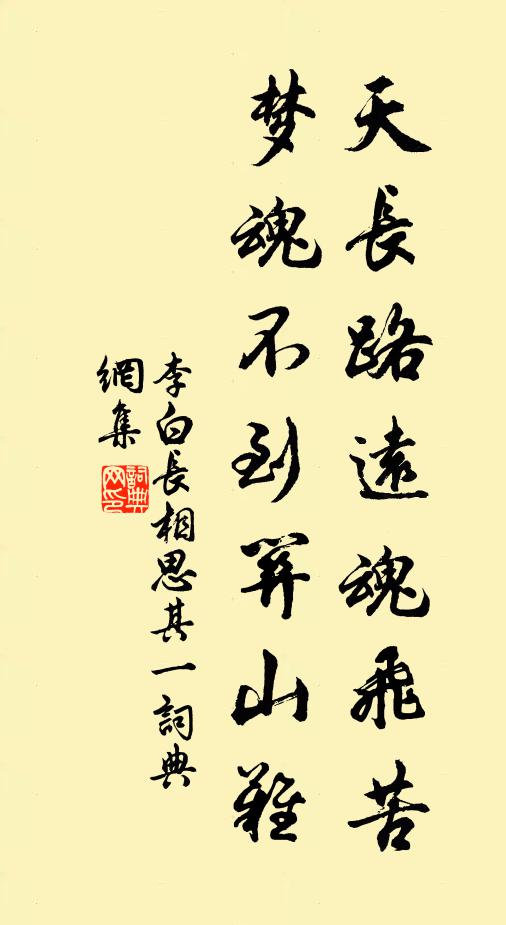 天長路遠魂飛苦
梦魂不到関山難
李白長相思其一詞典
網集
詞典
网印